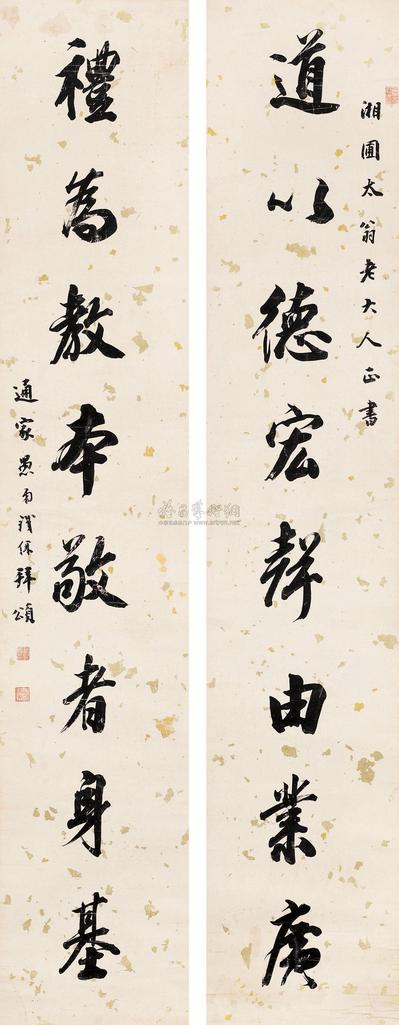 湘圃太翁老大人正書
道以德宏聲由業廣
禮為教本敬者身基
通家愚鐵保拜頌
雅昌藝術網
www.artron.net